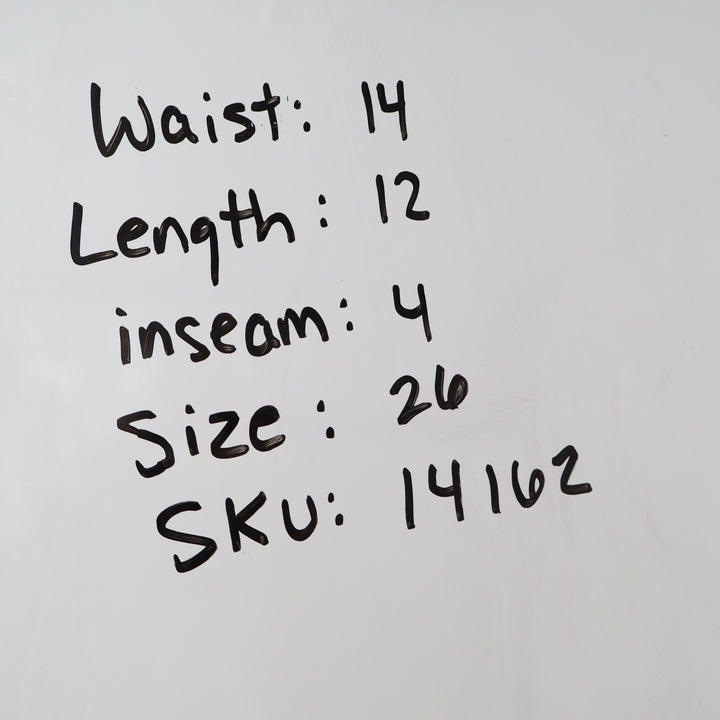 Waist: 14
Length: 12
inseam: 4
Size: 26
SKU: 14162